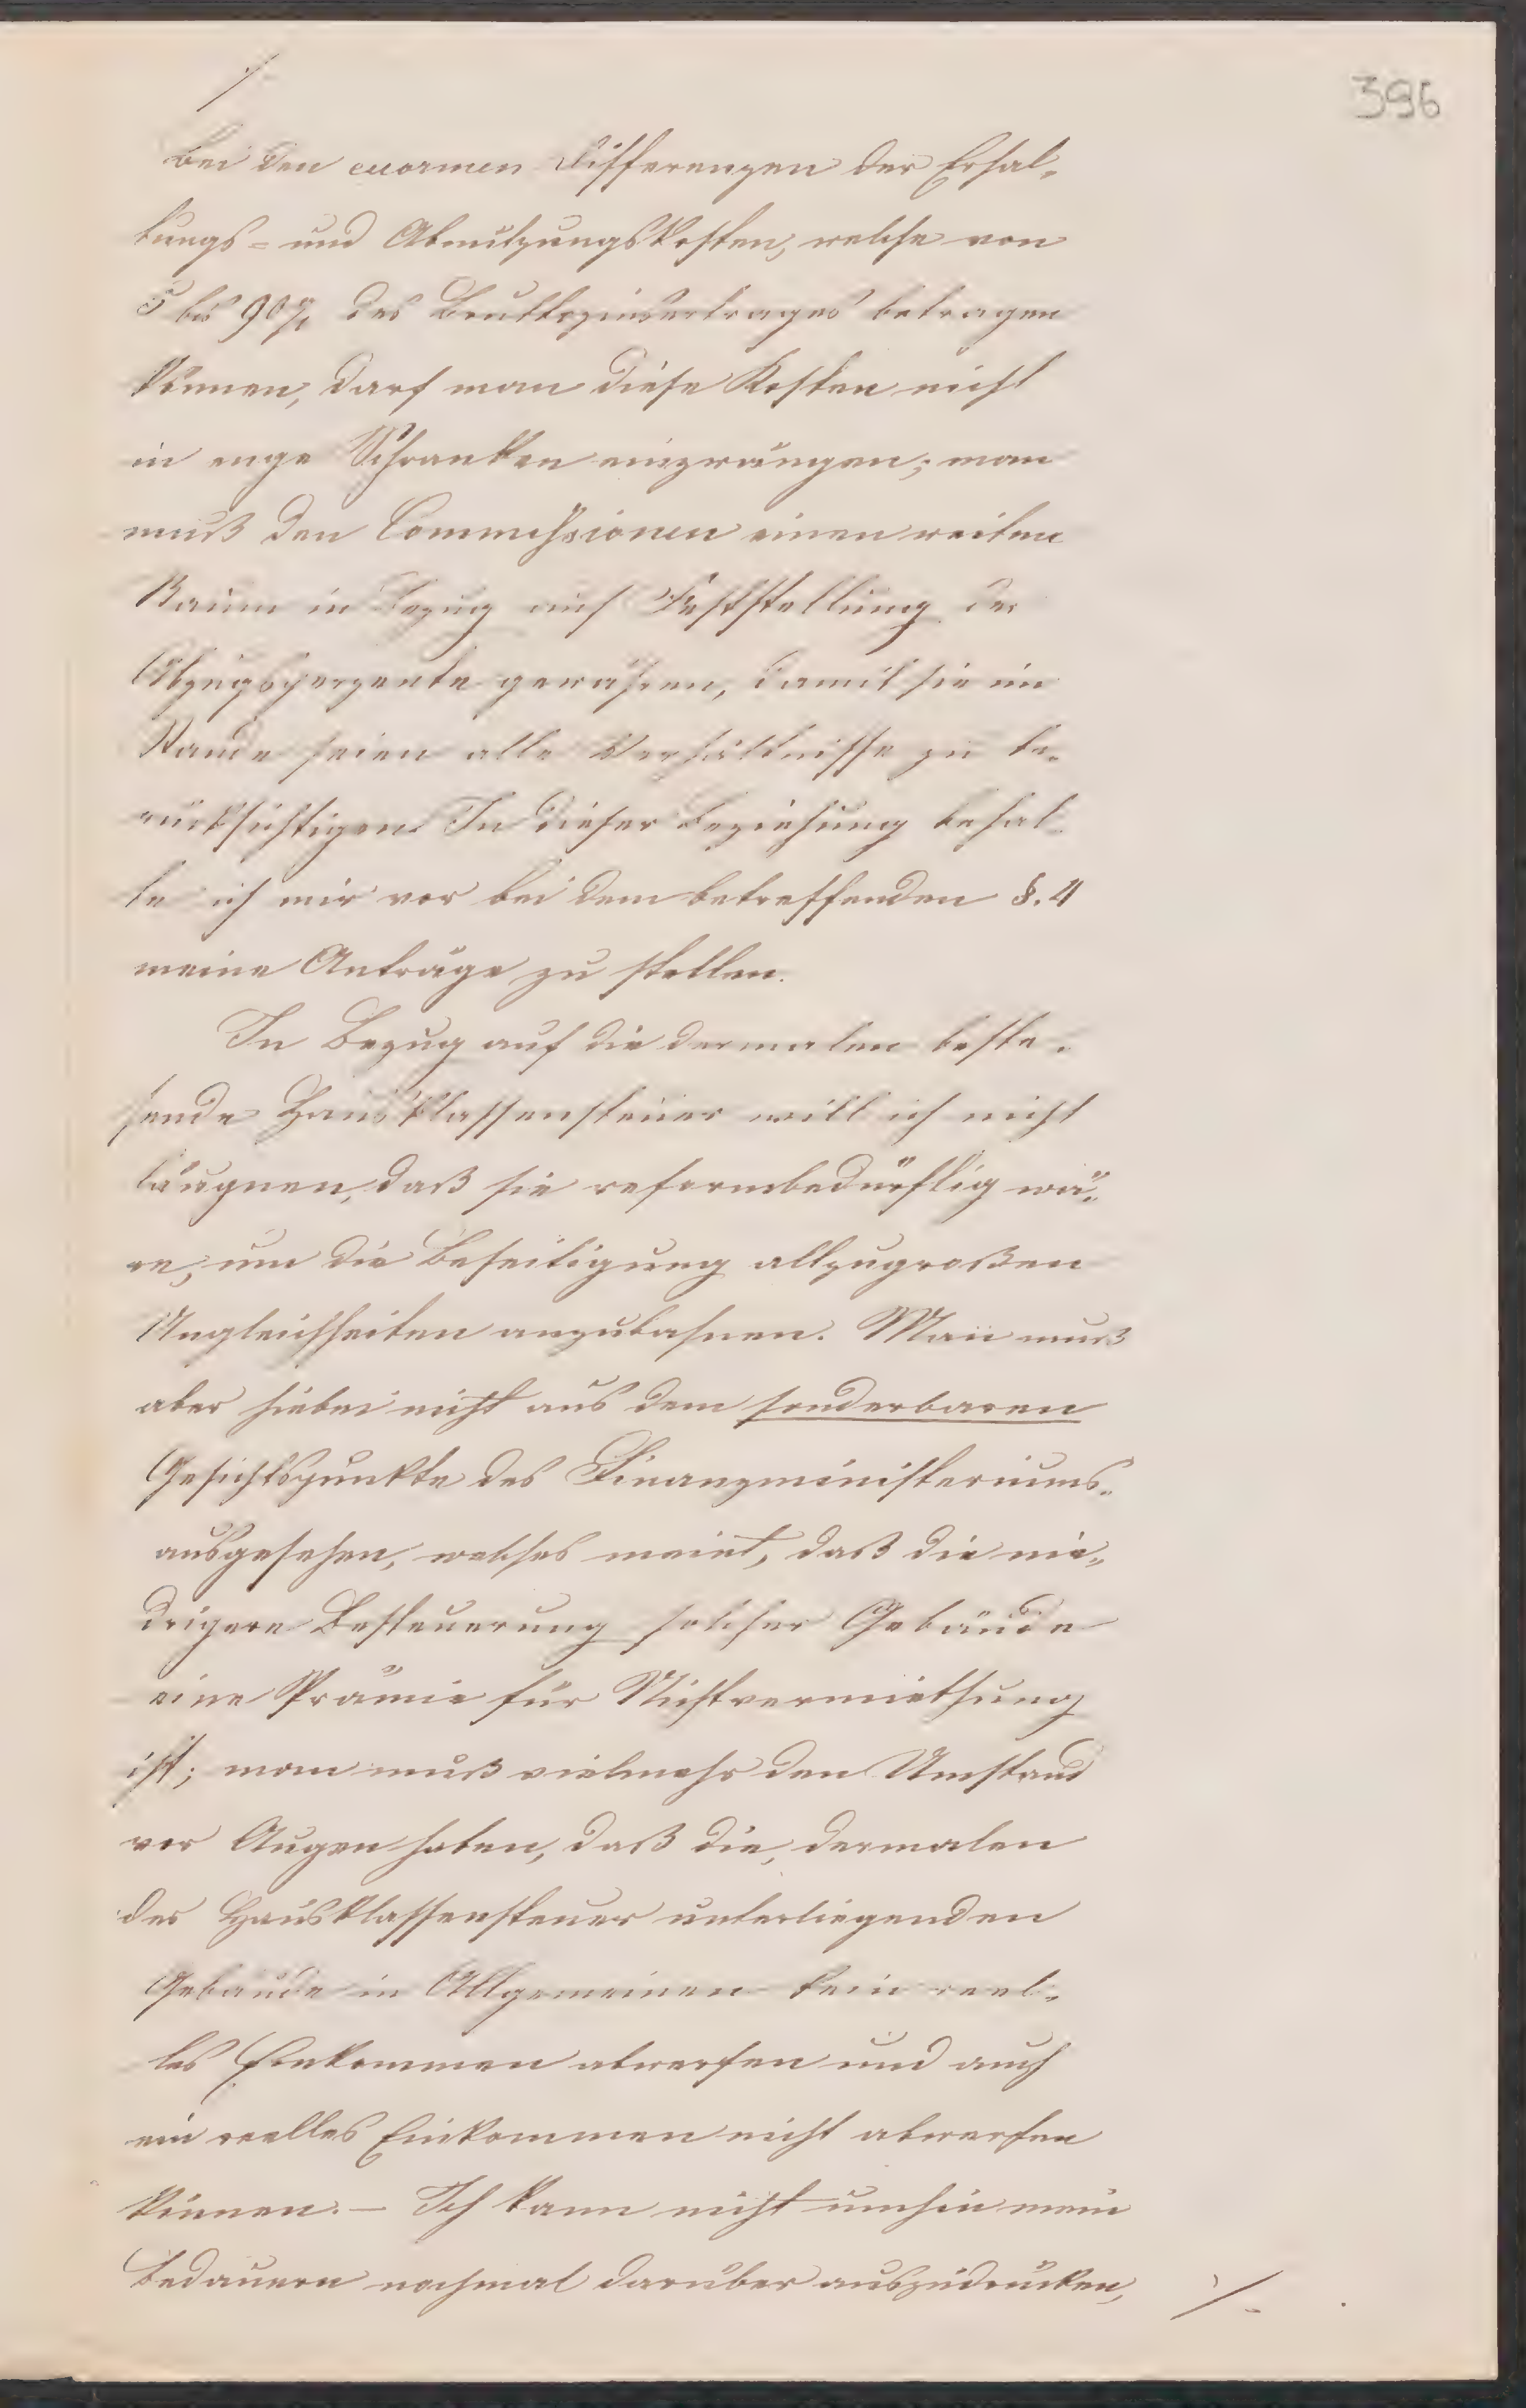 396
./.
Bei den enormen Differenzen der Erhal-
tungs- und Abnützungskosten, welche von
5 bis 90% des Bruttozinsertrages betragen
können, darf man diese Kosten nicht
in enge Schranken einzwängen; man
muß den Commissionen einen weiten
Raum in Bezug auf Feststellung der
Abzugsperzente gewähren, damit sie im
Stande seien alle Verhältnisse zu be-
rücksichtigen. In dieser Beziehung behal-
te ich mir vor bei dem betreffenden §. 4
meine Anträge zu stellen.
In Bezug auf die dermalen beste-
hende Hausklassensteuer will ich nicht
läugnen, daß sie reformbedürftig wä-
re, um die Beseitigung allzugroßen
Ungleichheiten anzubahnen. Man muß
aber hiebei nicht aus dem sonderbaren
Gesichtspunkte des Finanzministeriums
ausgehen, welches meint, daß die nie-
drigere Besteuerung solcher Gebäude
eine Prämie für Nichtvermiethung
ist; man muß vielmehr den Umstand
vor Augen haben, daß die, dermalen
der Hausklassensteuer unterliegenden
Gebäude im Allgemeinen kein reel-
les Einkommen abwerfen und auch
ein reelles Einkommen nicht abwerfen
können. – Ich kann nicht umhin mein
Bedauern nochmal darüber auszudrücken,
./.